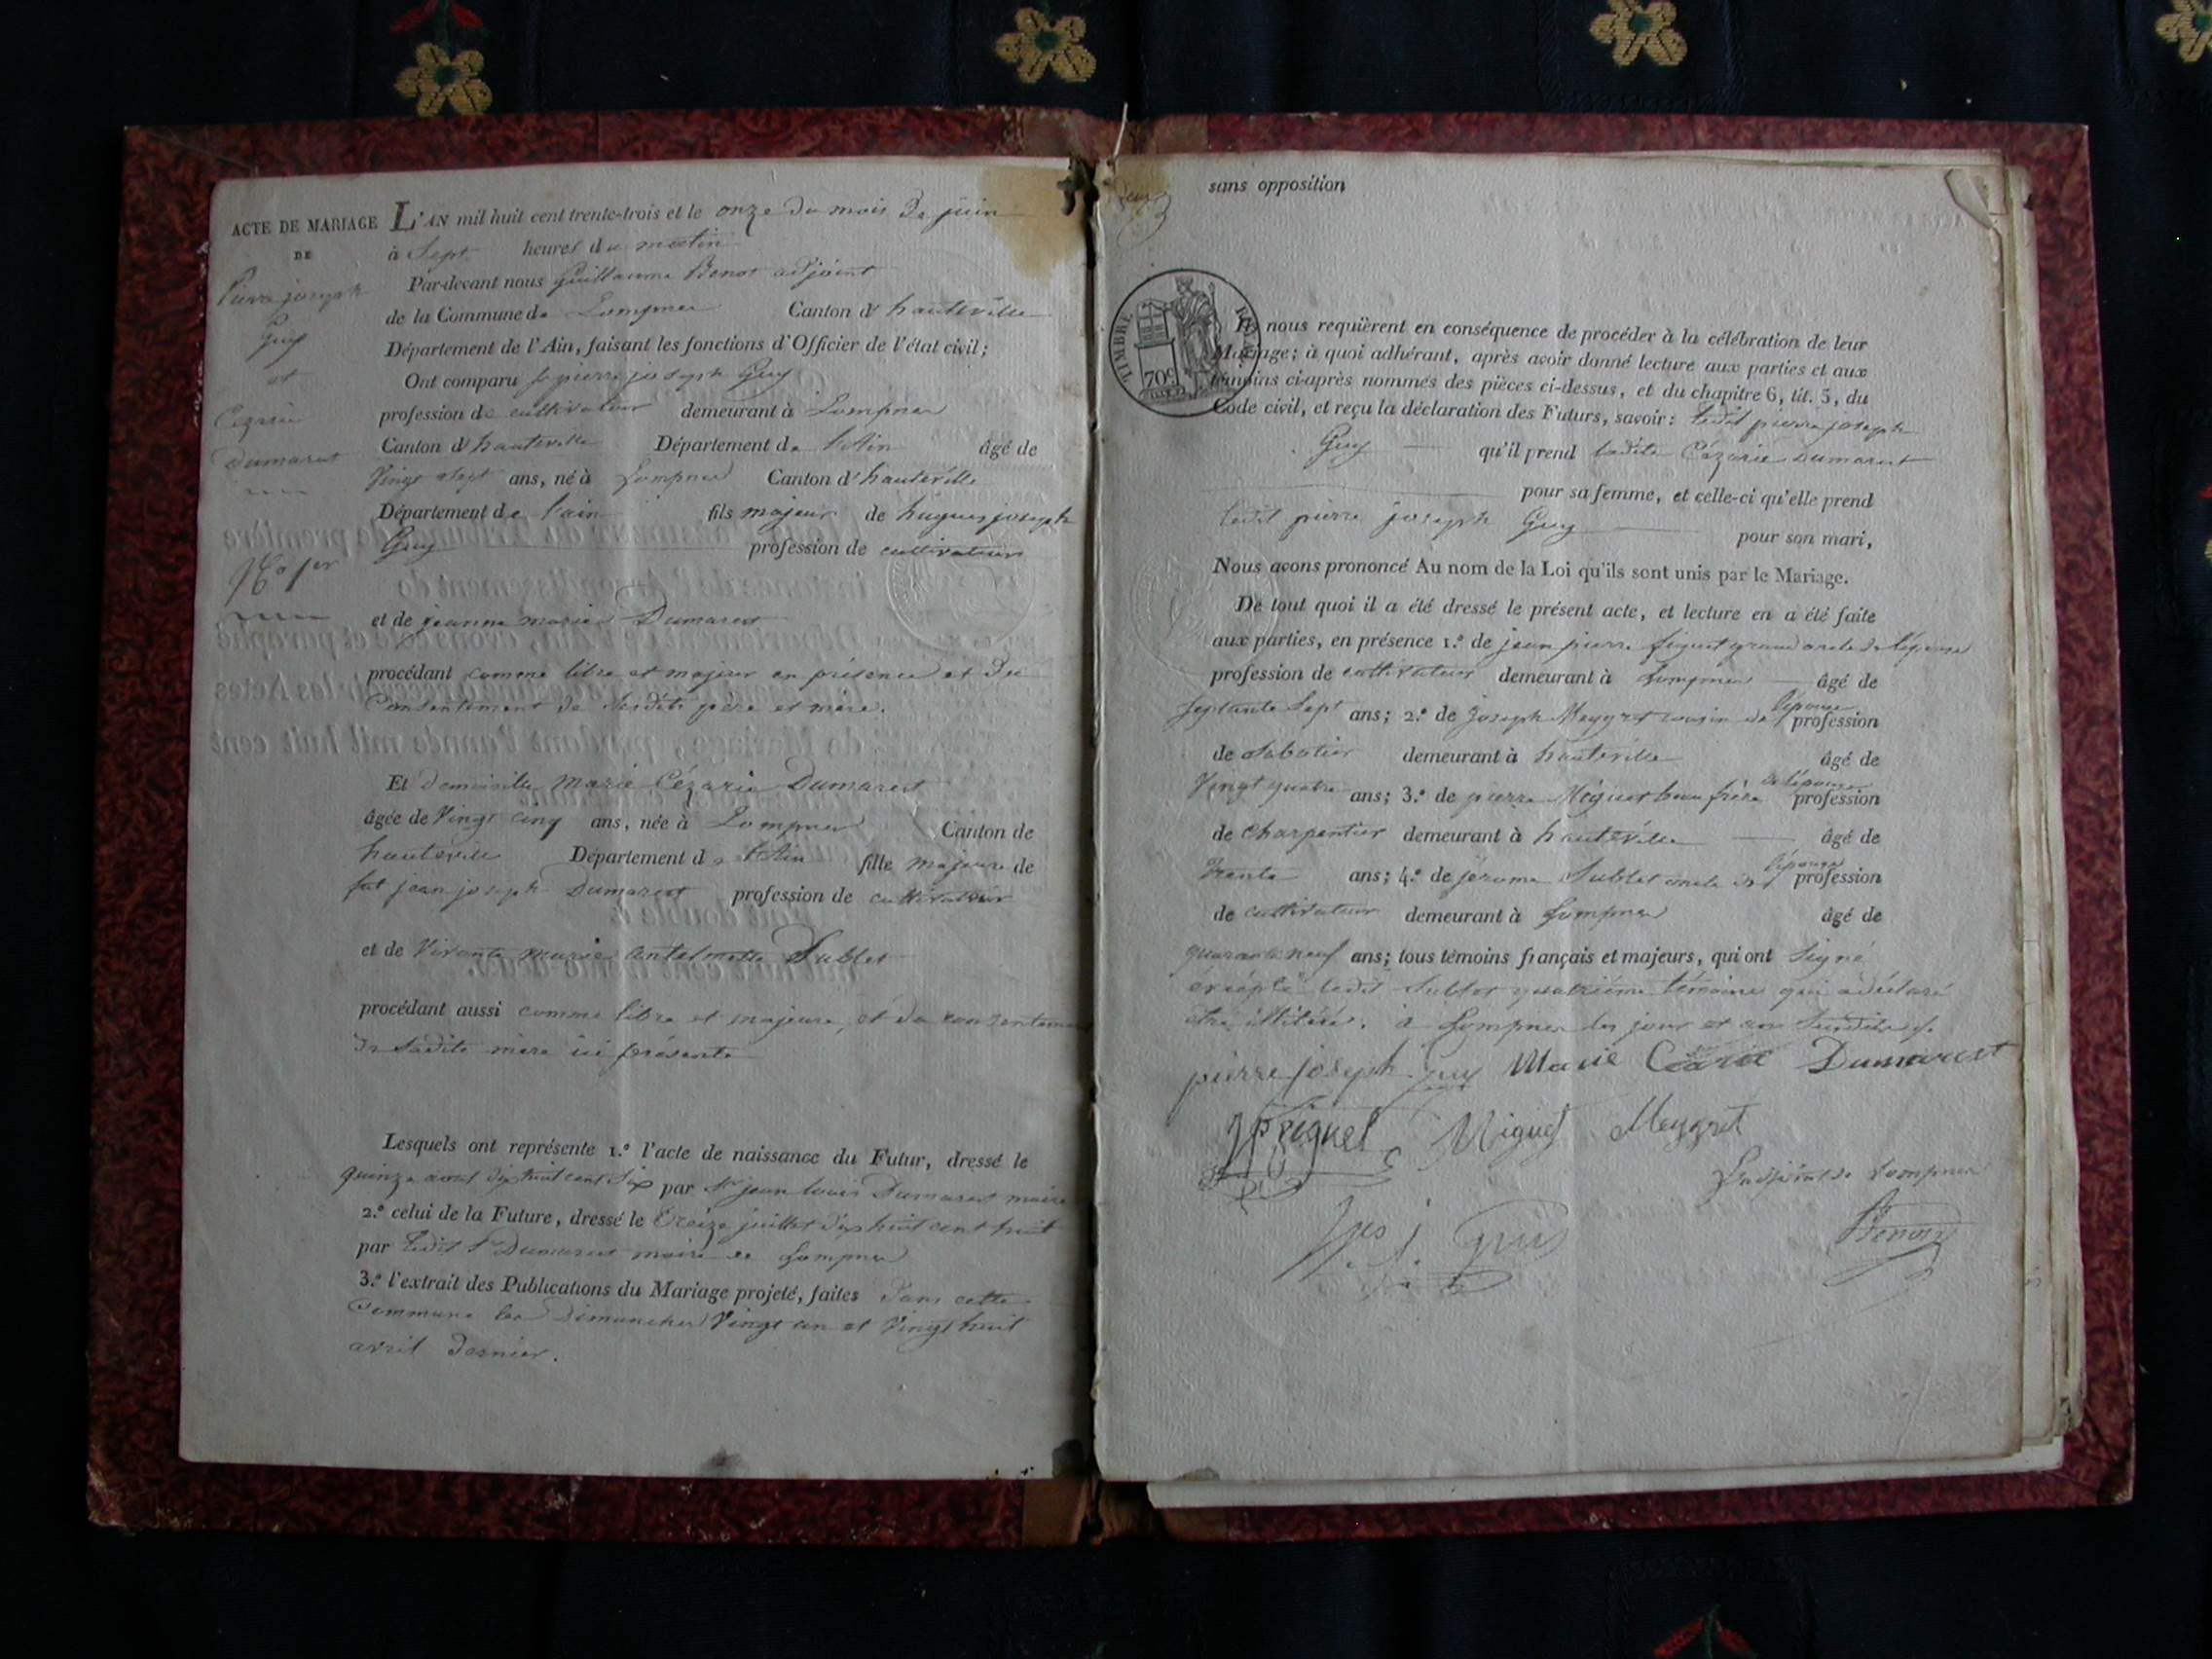 ACTE DE MARIAGE
DE
Pierre joseph
Guy
et
Cézarie
Dumarest
L'AN mil huit cent trente-trois et le onze du mois de juin
à Sept heures du matin
Par-devant nous Guillaume Benoi adjoint
de la Commune de Lompnes Canton d' hauteville
Département de l'Ain, faisant les fonctions d'Officier de l'état civil;
Ont comparu Sr pierre joseph Guy
profession de cultivateur demeurant à Lompnes
Canton d' hauteville Département de l'Ain âgé de
Vingt sept ans, né à Lompnes Canton d' hauteville
Département de l'ain fils majeur de hugues joseph
Guy profession de cultivateur
et de jeanne marie Dumarest
procédant comme libre et majeur en présence et du
Consentement de sesdits père et mère.
Et demoiselle Marie Cézarie Dumarest
âgée de Vingt cinq ans, née à Lompnes Canton de
hauteville Département de l'Ain fille majeure de
fut jean joseph Dumarest profession de cultivateur
et de Vivante marie antelmette Sublet
procédant aussi comme libre et majeure, et du consentement
de sadite mère ici présente
Lesquels ont représente 1.° l'acte de naissance du Futur, dressé le
quinze aout dix huit cent Six par Sr jean louis Dumarest maire
2.° celui de la Future, dressé le treize juillet dix huit cent huit
par ledit Sr Dumarest maire de Lompnes
3.° l'extrait des Publications du Mariage projeté, faites dans cette
Commune les dimanches Vingt un et Vingt huit
avril dernier.
sans opposition
TIMBRE
70c
Ils nous requièrent en conséquence de procéder à la célébration de leur
Mariage; à quoi adhérant, après avoir donné lecture aux parties et aux
témoins ci-après nommés des pièces ci-dessus, et du chapitre 6, tit. 5, du
Code civil, et reçu la déclaration des Futurs, savoir: ledit pierre joseph
Guy qu'il prend ladite Cézarie Dumarest
pour sa femme, et celle-ci qu'elle prend
ledit pierre joseph Guy pour son mari,
Nous avons prononcé Au nom de la Loi qu'ils sont unis par le Mariage.
De tout quoi il a été dressé le présent acte, et lecture en a été faite
aux parties, en présence 1.° de jean pierre figuet grand oncle de l'épouse
profession de cultivateur demeurant à Lompnes âgé de
septante sept ans; 2.° de joseph Meygret cousin de l'épouse profession
de Sabotier demeurant à hauteville âgé de
Vingt quatre ans; 3.° de pierre Miguet beau frère de l'épouse profession
de Charpentier demeurant à hauteville âgé de
Trente ans; 4.° de jérome Sublet oncle de l'épouse profession
de cultivateur demeurant à Lompnes âgé de
quarante neuf ans; tous témoins français et majeurs, qui ont signé
excepté ledit Sublet quatrième témoin qui a déclaré
être illitéré. à Lompnes les jour et an susdits
pierre joseph guy Marie Cézarie Dumarest
Jp figuet Miguet Meygret
L'adjoint de Lompnes
hgs j. guy Benoi